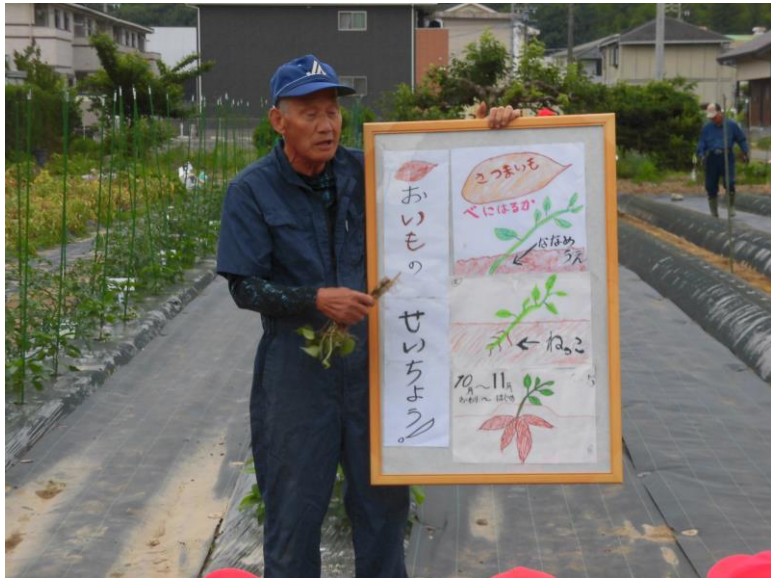 おいもの
せいちょう!
さつまいも
べにはるか
ななめ
うえ
ねっこ
10月〜11月